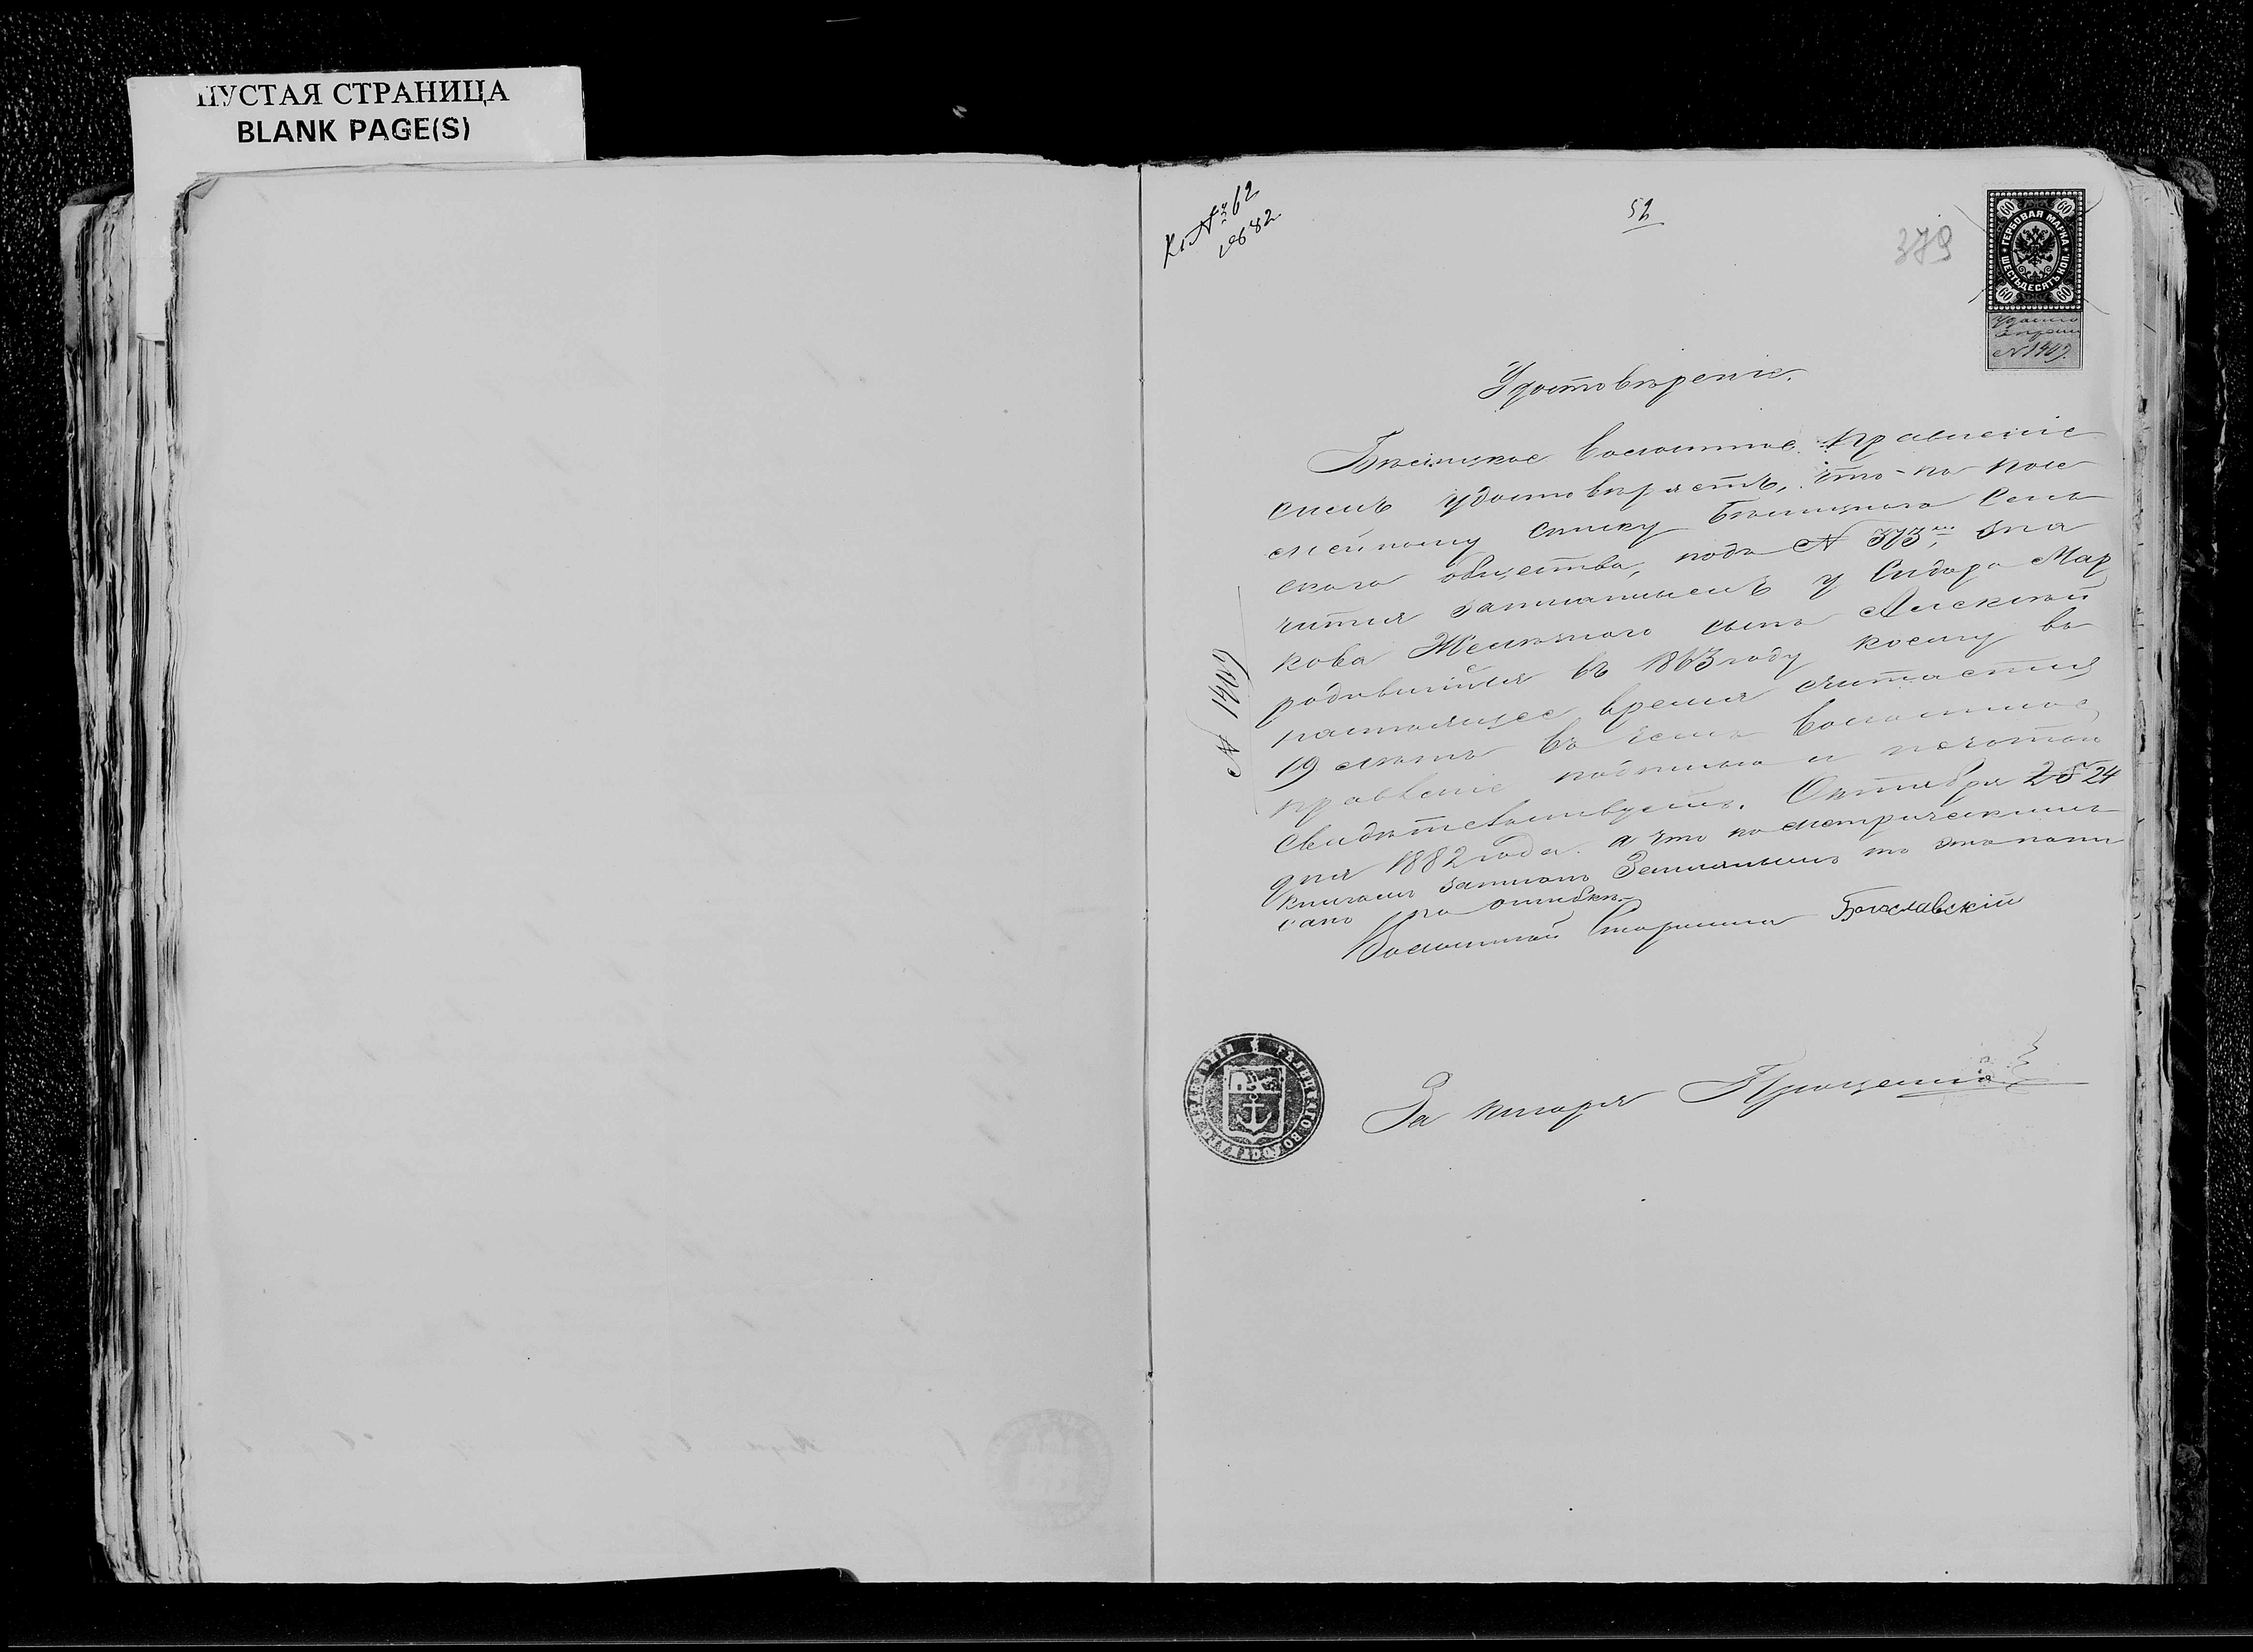 ПУСТАЯ СТРАНИЦА
BLANK PAGE(S)
№ 362
1882
52
379
60 60
ГЕРБОВАЯ МАРКА
ШЕСТЬДЕСЯТЪ КОП.
60 60
№ 1409.
Удостовѣреніе.
Волостное Правленіе
симъ удостовѣряетъ, что по посе
мейному списку Сель
скаго общества, подъ № 373м, зна
чится записаннымъ у Сидора Мар
кова сынъ Алексѣй
родившійся въ 1863 году коему въ
настоящее время считается
19 лѣтъ въ чемъ Волостное
правленіе подписью и печатью
свидѣтельствуетъ. Октября 25 24
дня 1882 года. а что по метрическимъ
книгамъ записанъ то это напи
сано по ошибкѣ.
Волостной Старшина Богославскій
№ 1409
За писаря